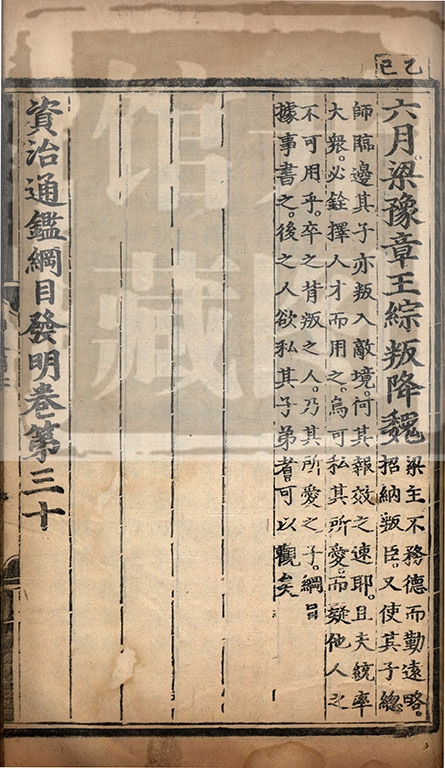 乙巳
六月梁豫章王綜叛降魏
梁主不務德而勤遠略。
招納叛臣。又使其子總
師臨邊其子亦叛入敵境。何其報效之速耶。且夫統率
大衆。必銓擇人才而用之。烏可私其所愛。而疑他人之
不可用乎。卒之背叛之人。乃其所愛之子。綱目
據事書之。後之人欲私其子弟者可以觀矣
資治通鑑綱目發明卷第三十
馆藏